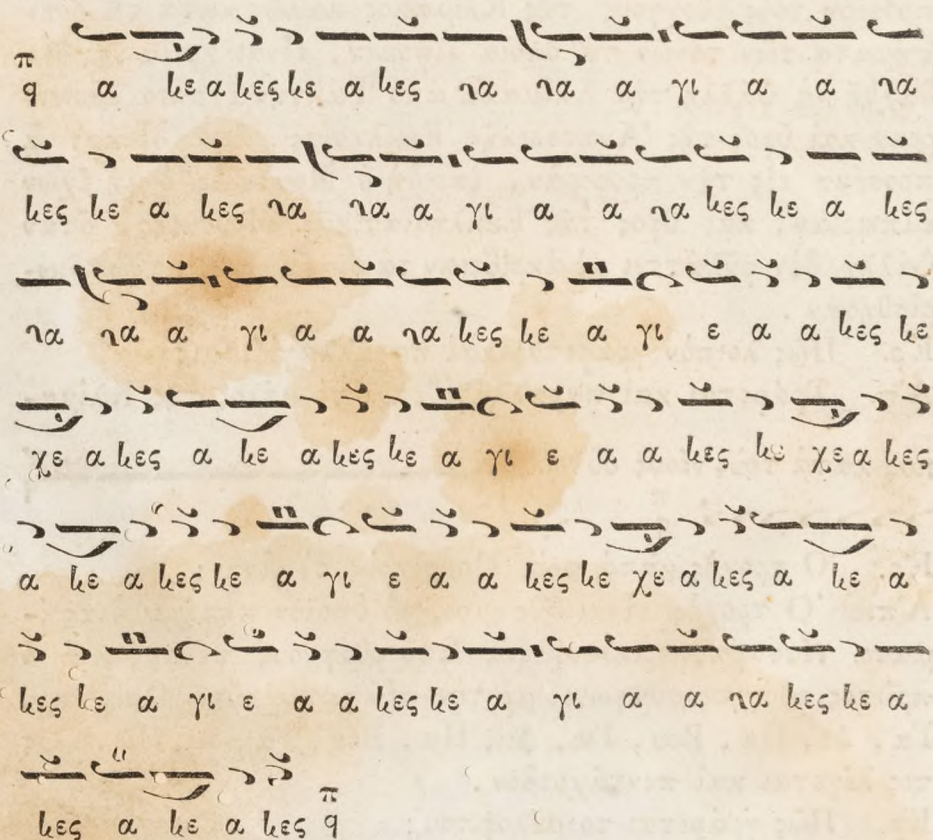 π
q α κε α κες κε α κες να να α γι α α να
κες κε α κες να να α γι α α να κες κε α κες
να να α γι α α να κες κε α γι ε α α κες κε
χε α κες α κε α κες κε α γι ε α α κες κε χε α κες
α κε α κες κε α γι ε α α κες κε χε α κες α κε α
κες κε α γι ε α α κες κε α γι α α να κες κε α
κες α κε α κες π
q